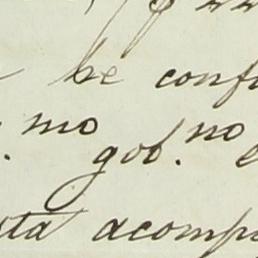 se conf
mo gob.no e
sta acomp